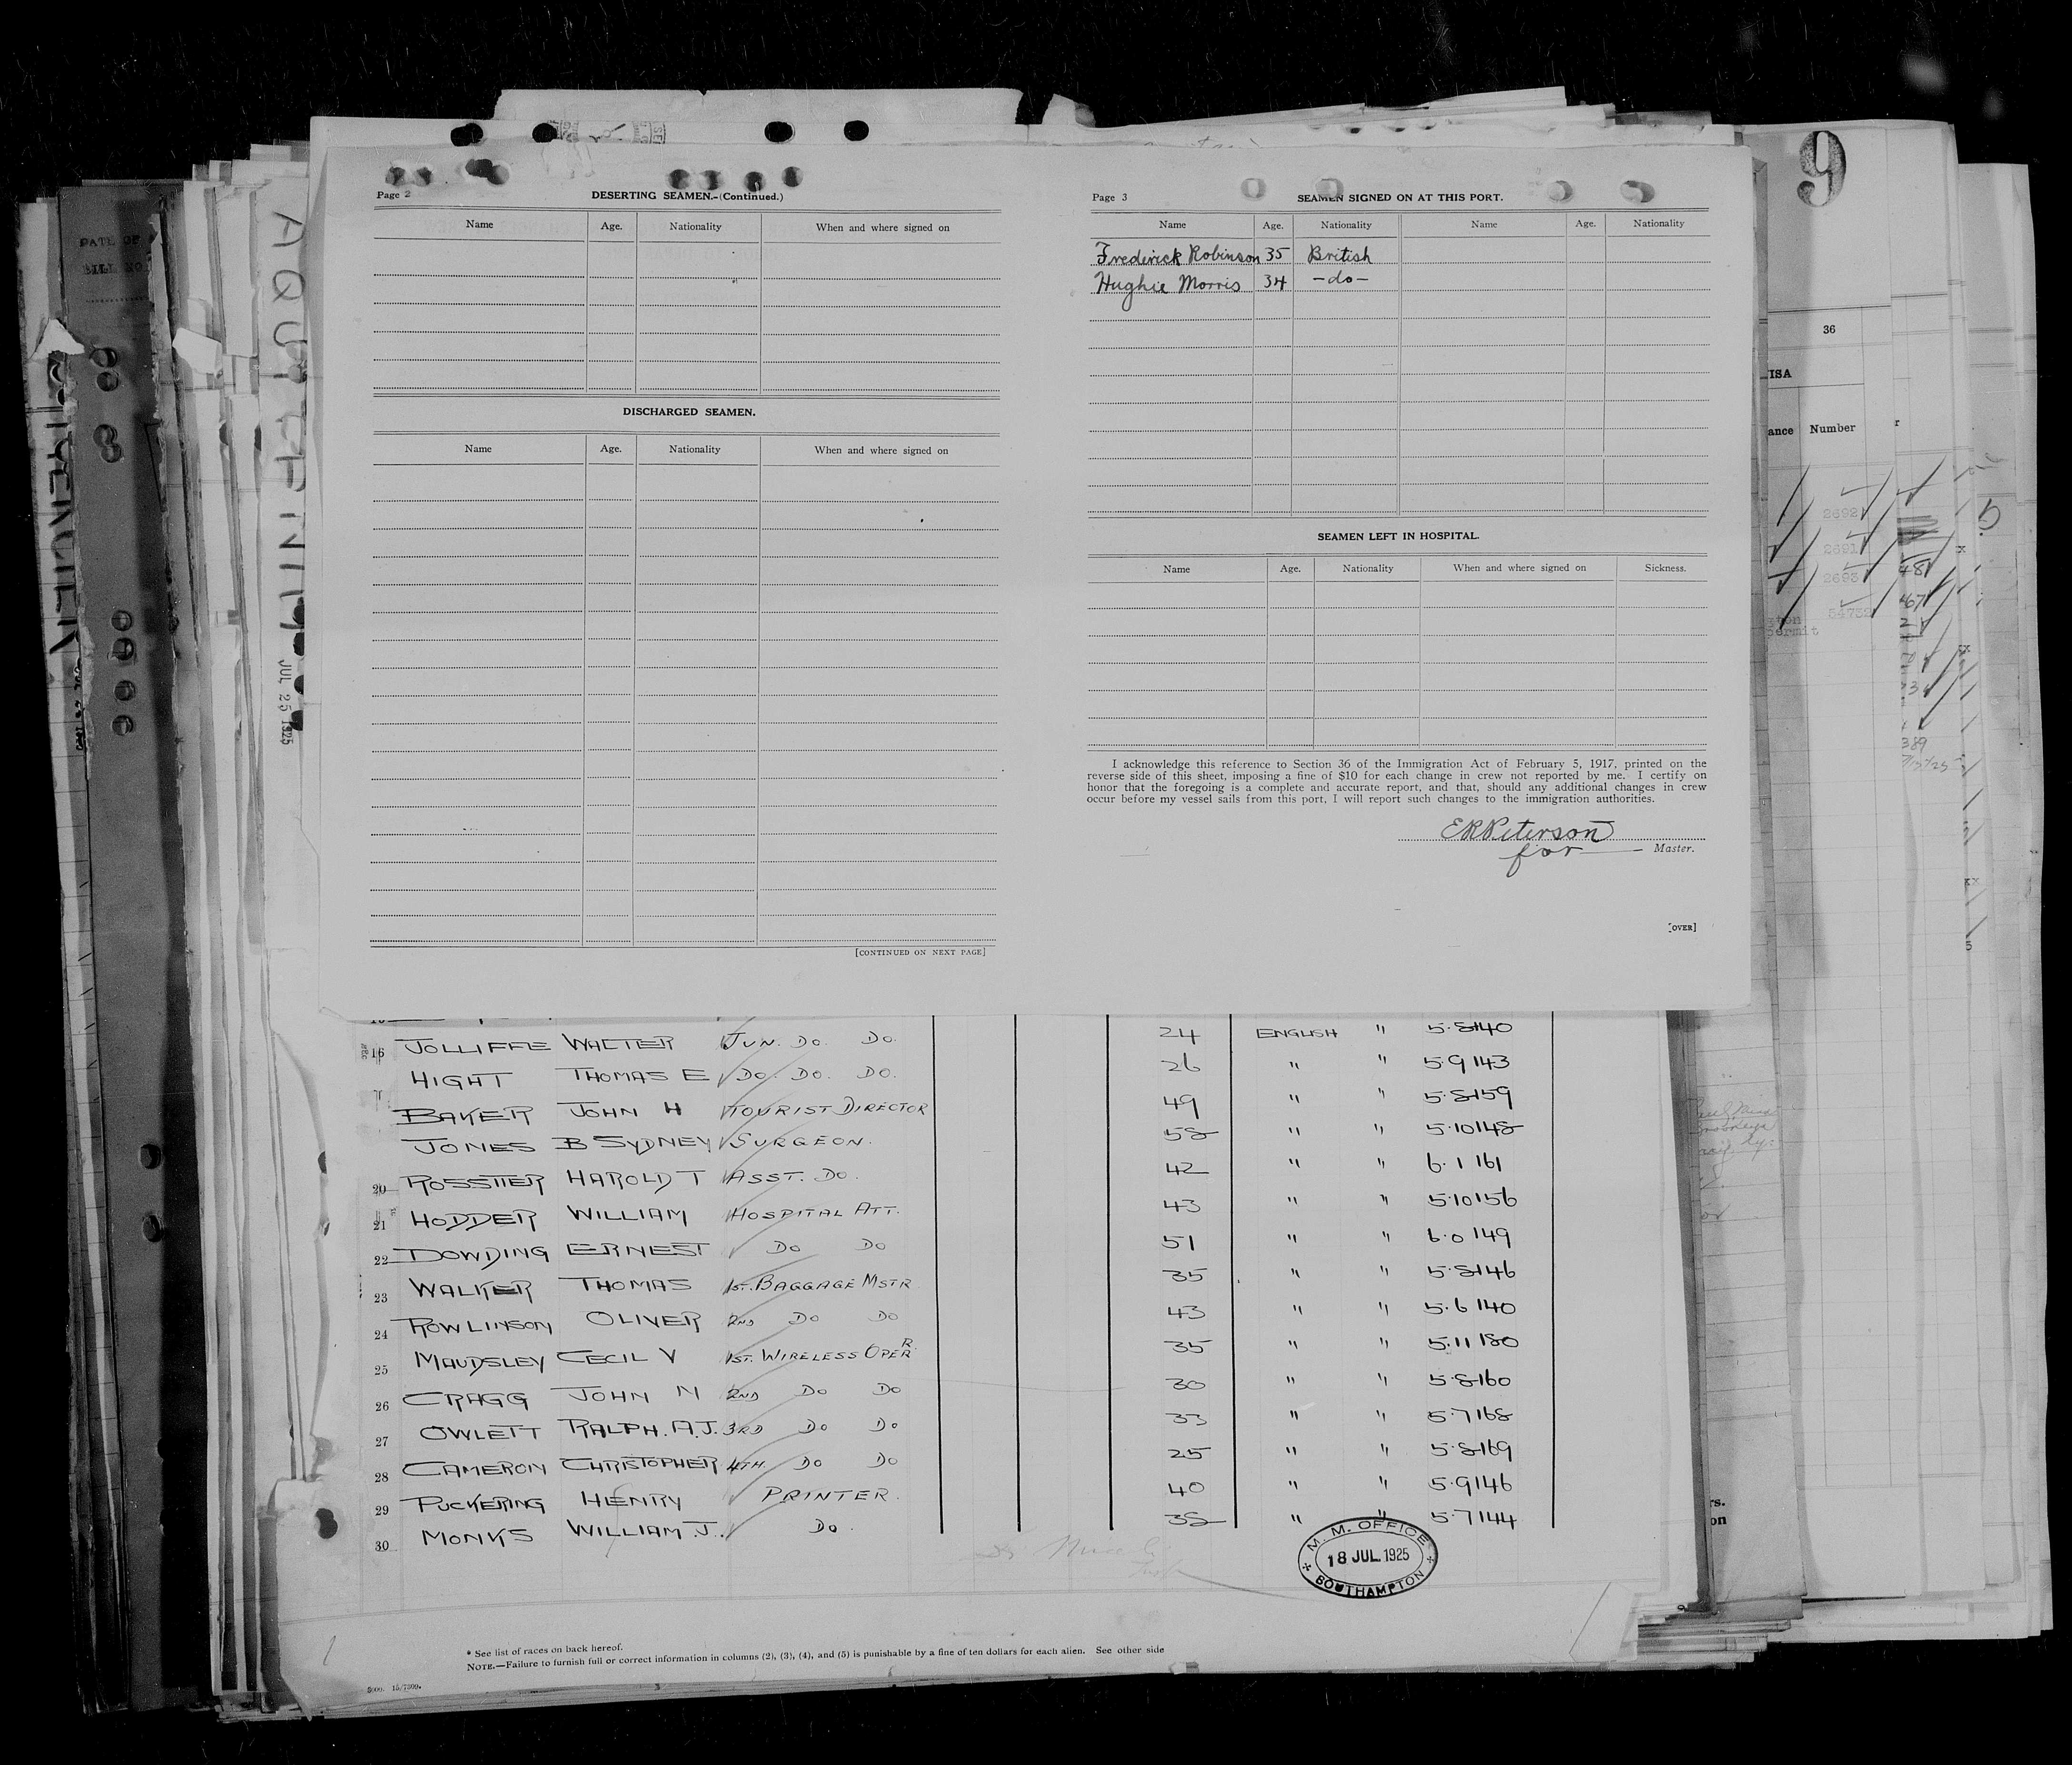 Page 2
DESERTING SEAMEN.-(Continued.)
Name Age. Nationality When and where signed on
DISCHARGED SEAMEN.
Name Age. Nationality When and where signed on
[CONTINUED ON NEXT PAGE]
Page 3
SEAMEN SIGNED ON AT THIS PORT.
Name Age. Nationality Name Age. Nationality
Frederick Robinson 35 British
Hughie Morris 34 -do-
SEAMEN LEFT IN HOSPITAL.
Name Age. Nationality When and where signed on Sickness.
I acknowledge this reference to Section 36 of the Immigration Act of February 5, 1917, printed on the
reverse side of this sheet, imposing a fine of $10 for each change in crew not reported by me. I certify on
honor that the foregoing is a complete and accurate report, and that, should any additional changes in crew
occur before my vessel sails from this port, I will report such changes to the immigration authorities.
E R Peterson
for Master.
[OVER]
16 JOLLIFFE WALTER JUN. DO. DO. 24 ENGLISH " 5.8 140
HIGHT THOMAS E DO. DO. DO. 26 " " 5.9 143
BAKER JOHN H TOURIST DIRECTOR 49 " " 5.8 159
JONES B SYDNEY SURGEON. 58 " " 5.10 148
20 ROSSITER HAROLD T ASST. DO. 42 " " 6.1 161
21 HODDER WILLIAM HOSPITAL ATT. 43 " " 5.10 156
22 DOWDING ERNEST DO DO 51 " " 6.0 149
23 WALKER THOMAS 1ST. BAGGAGE MSTR 35 " " 5.8 146
24 ROWLINSON OLIVER 2ND DO DO 43 " " 5.6 140
25 MAUDSLEY CECIL V 1ST. WIRELESS OPERR 35 " " 5.11 180
26 CRAGG JOHN N 2ND DO DO 30 " " 5.8 160
27 OWLETT RALPH. A.J. 3RD DO DO 33 " " 5.7 168
28 CAMERON CHRISTOPHER 4TH. DO DO 25 " " 5.8 169
29 PUCKERING HENRY PRINTER. 40 " " 5.9 146
30 MONKS WILLIAM J. DO. 38 " " 5.7 144
M. M. OFFICE
18 JUL. 1925
SOUTHAMPTON
* See list of races on back hereof.
NOTE.—Failure to furnish full or correct information in columns (2), (3), (4), and (5) is punishable by a fine of ten dollars for each alien. See other side
JUL 25 1925
9
36
Number
2692
2691
2693
permit